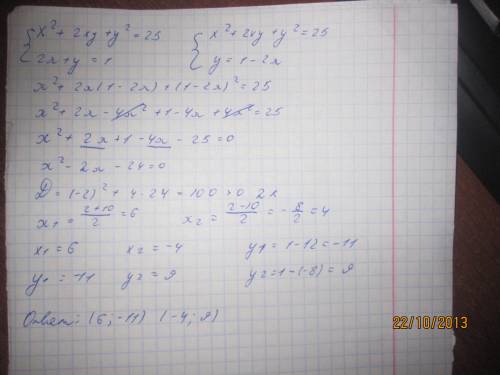 { x² + 2xy + y² = 25   { x² + 2xy + y² = 25
2x + y = 1   y = 1 - 2x
x² + 2x(1 - 2x) + (1 - 2x)² = 25
x² + 2x - 4x² + 1 - 4x + 4x² = 25
x² + 2x + 1 - 4x - 25 = 0
x² - 2x - 24 = 0
D = (-2)² + 4 · 24 = 100 > 0 2к
x₁ = (2+10)/2 = 6   x₂ = (2-10)/2 = -8/2 = 4
x₁ = 6   x₂ = -4   y₁ = 1 - 12 = -11
y₁ = -11   y₂ = 9   y₂ = 1 - (-8) = 9
Ответ: (6; -11) (-4; 9)
22/10/2013